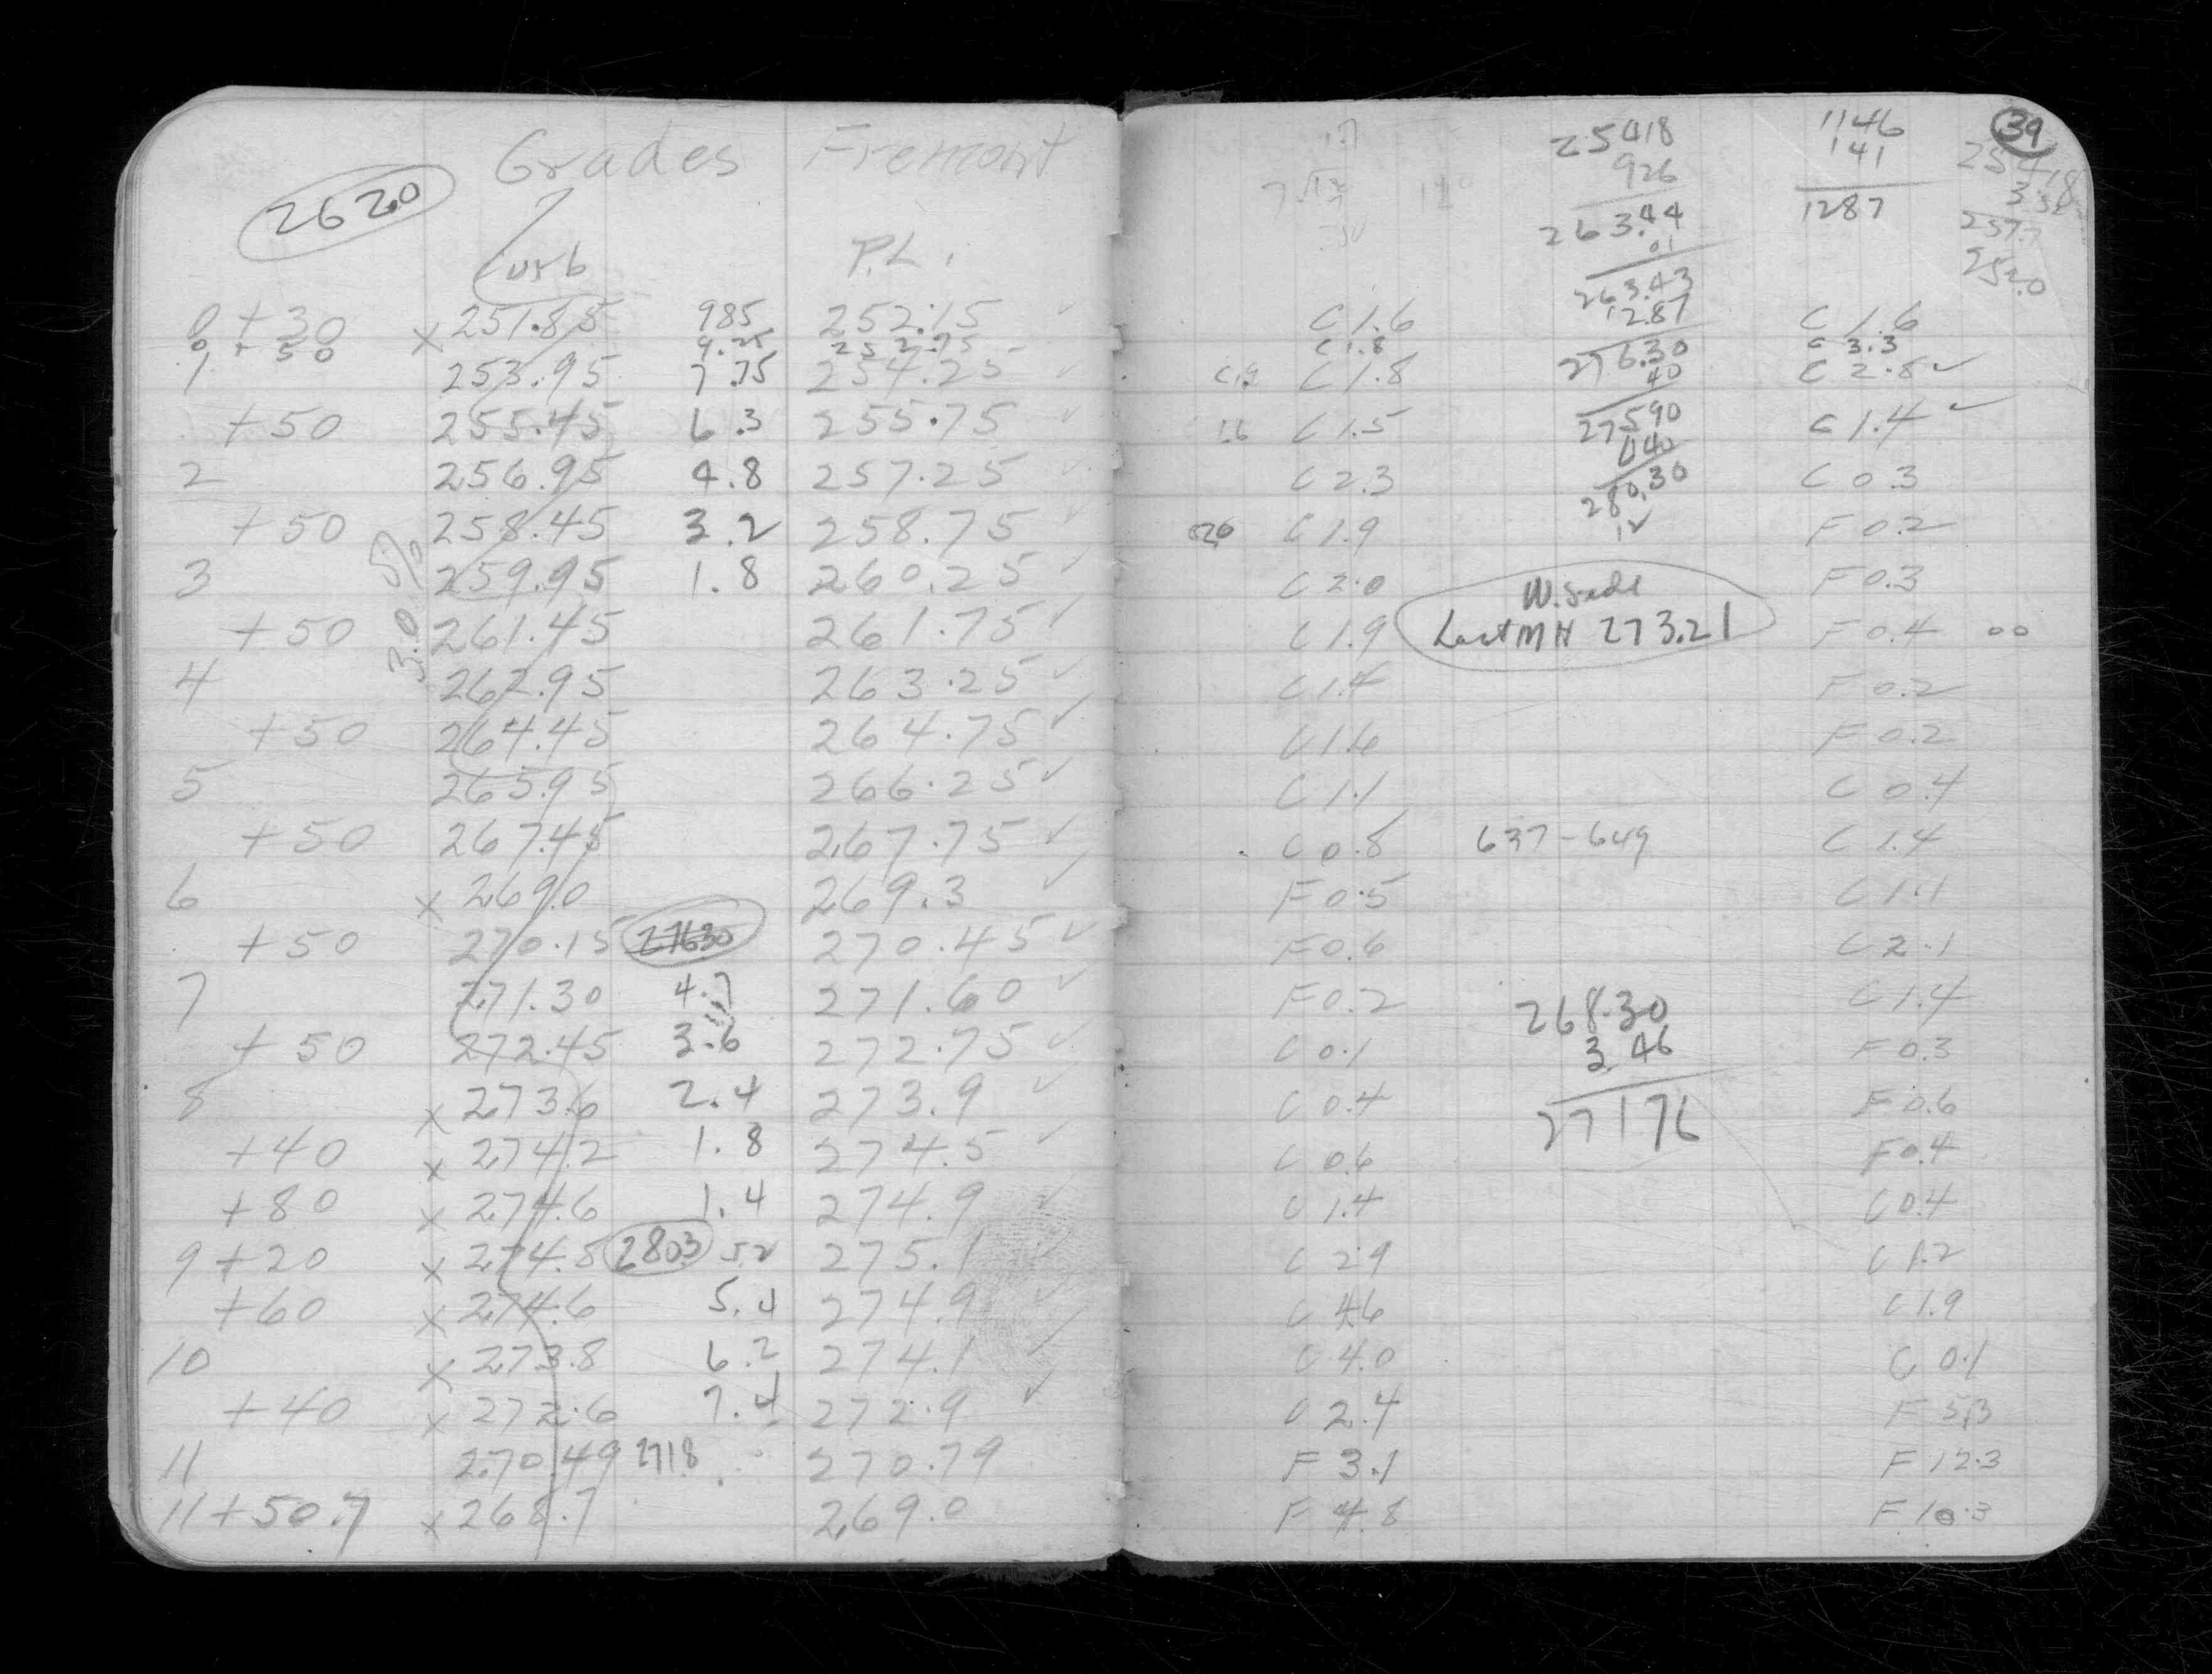 Grades Fremont
2620
Curb P.L.
0 + 30 x 251.85 985 252.15 ✓
0 + 50 9.25 252.75
1 253.95 7.75 254.25 ✓
+50 255.45 6.3 255.75 ✓
2 256.95 4.8 257.25 ✓
+50 258.45 3.2 258.75 ✓
3 259.95 1.8 260.25 ✓
3.0 %
+50 261.45 261.75 ✓
4 262.95 263.25 ✓
+50 264.45 264.75 ✓
5 265.95 266.25 ✓
+50 267.45 267.75 ✓
6 x 269.0 269.3 ✓
+50 270.15 27630 270.45 ✓
7 271.30 4.7 271.60 ✓
+50 272.45 3.6 272.75 ✓
8 x 273.6 2.4 273.9 ✓
+40 x 274.2 1.8 274.5 ✓
+80 x 274.6 1.4 274.9 ✓
9 +20 x 274.8 2803 5.2 275.1 ✓
+60 x 274.6 5.4 274.9 ✓
10 x 273.8 6.2 274.1 ✓
+40 x 272.6 7.4 272.9 ✓
11 270.49 2718 270.79
11+50.7 x 268.7 269.0
39
25418
926
263.44
01
263.43
1287
276.30
40
27590
440
280.30
12
1146
141
1287
254.18
257.7
252.0
C 1.6 C 1.6
C 1.8 C 3.3
C 1.9 C 1.8 C 2.8 ✓
1.6 C 1.5 C 1.4 ✓
C 2.3 C 0.3
C 1.9 F 0.2
C 2.0 F 0.3
W. Side
Last MH 273.21
C 1.9 F 0.4 00
C 1.4 F 0.2
C 1.6 F 0.2
C 1.1 C 0.4
C 0.8 637-649 C 1.4
F 0.5 C 1.1
F 0.6 C 2.1
F 0.2 C 1.4
268.30
3.46
27176
C 0.1 F 0.3
C 0.4 F 0.6
C 0.6 F 0.4
C 1.4 C 0.4
C 2.9 C 1.2
C 4.6 C 1.9
C 4.0 C 0.1
C 2.4 F 5.3
F 3.1 F 12.3
F 4.8 F 10.3